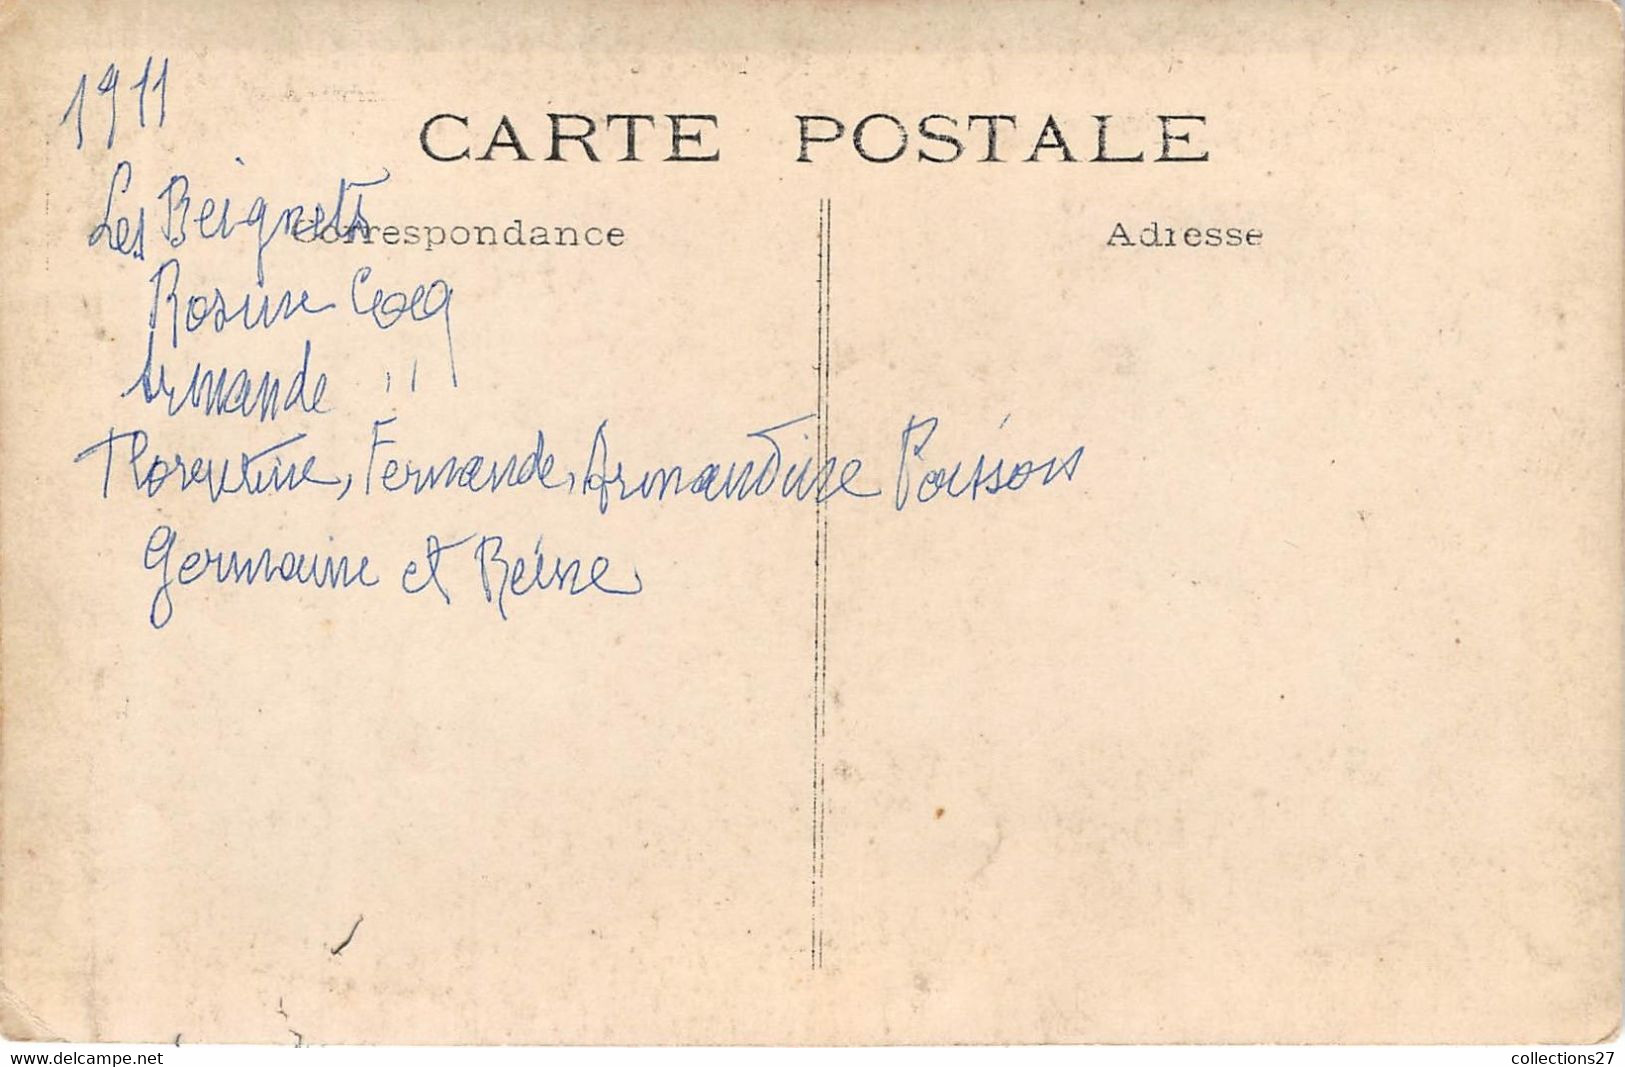 1911
CARTE POSTALE
Les Beignets
Correspondance
Adresse
Rosine Cocq
Armande "
Florentine, Fernande, Armandine Poissons
Germaine et Reine
www.delcampe.net
collections27